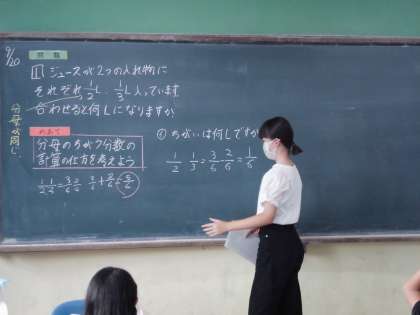 9/20
問題
1 ジュースが2つの入れ物に
それぞれ1/2L、1/3L入っています
合わせると何Lになりますか
分母が同じ
めあて
分母のちがう分数の
計算の仕方を考えよう
1/2 1/3 = 3/6 2/6 3/6 + 2/6 = 5/6
② ちがいは何Lですか
1/2 1/3 = 3/6 2/6 = 1/6